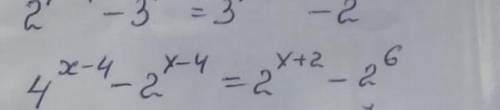 2 - 3 = 3 - 2
4^{x-4} - 2^{x-4} = 2^{x+2} - 2^{6}